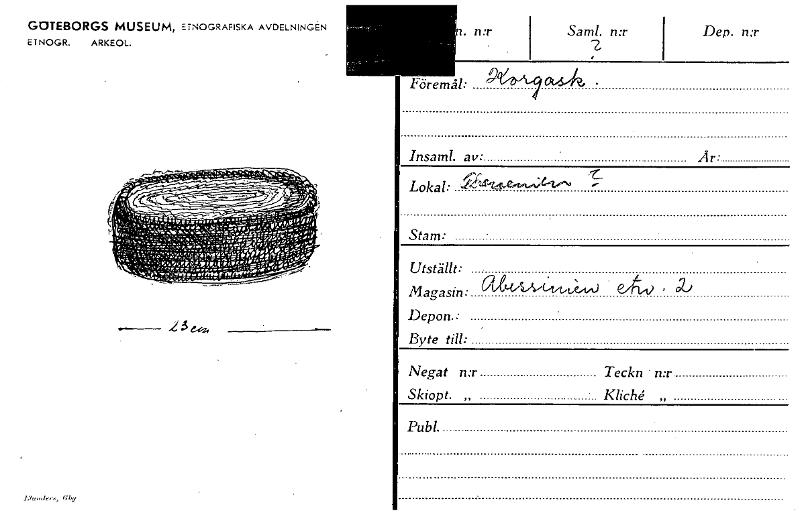 GÖTEBORGS MUSEUM, ETNOGRAFISKA AVDELNINGEN
ETNOGR. ARKEOL.
n. n:r Saml. n:r Dep. n:r
?
Föremål: Korgask.
Insaml. av: År:
Lokal: ?
Stam:
Utställt:
Magasin: Abessinien etn. 2
Depon.:
Byte till:
Negat n:r Teckn n:r
Skiopt. „ Kliché „
Publ.
23 cm
Elanders, Gbg